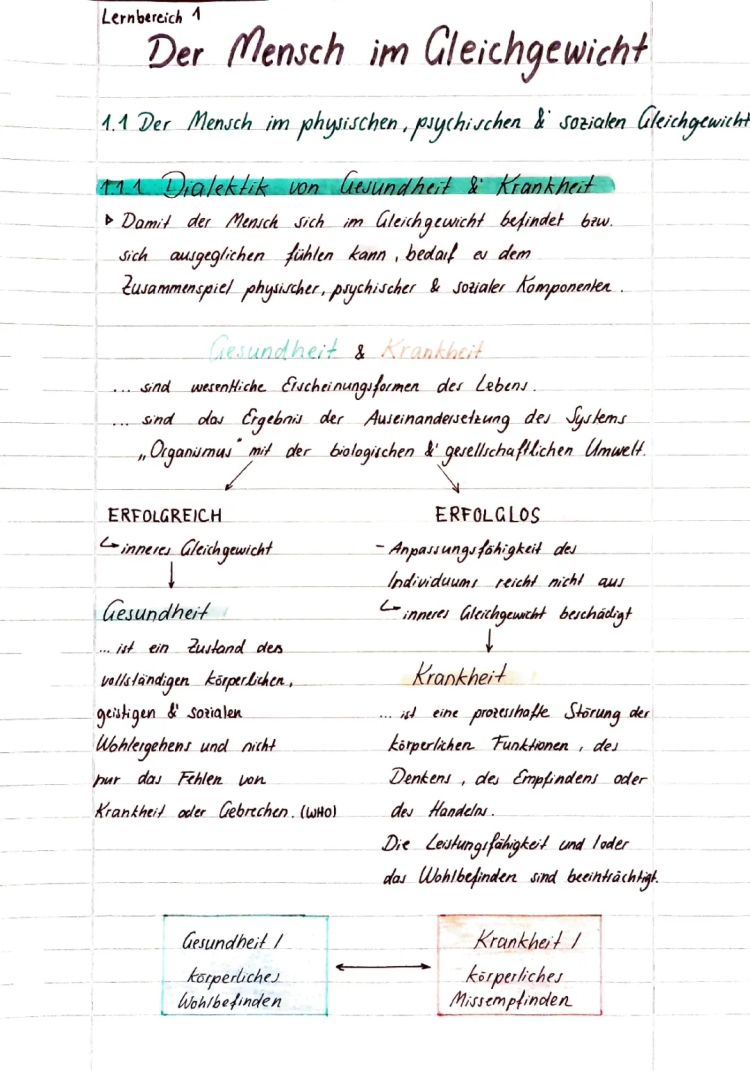 Lernbereich 1
Der Mensch im Gleichgewicht
1.1 Der Mensch im physischen, psychischen & sozialen Gleichgewicht
1.1.1 Dialektik von Gesundheit & Krankheit
▹ Damit der Mensch sich im Gleichgewicht befindet bzw.
sich ausgeglichen fühlen kann, bedarf es dem
Zusammenspiel physischer, psychischer & sozialer Komponenten.
Gesundheit & Krankheit
... sind wesentliche Erscheinungsformen des Lebens.
... sind das Ergebnis der Auseinandersetzung des Systems
„Organismus" mit der biologischen & gesellschaftlichen Umwelt.
ERFOLGREICH
↳ inneres Gleichgewicht
↓
Gesundheit
... ist ein Zustand des
vollständigen körperlichen,
geistigen & sozialen
Wohlergehens und nicht
nur das Fehlen von
Krankheit oder Gebrechen. (WHO)
ERFOLGLOS
- Anpassungsfähigkeit des
Individuums reicht nicht aus
↳ inneres Gleichgewicht beschädigt
↓
Krankheit
... ist eine prozesshafte Störung der
körperlichen Funktionen, des
Denkens, des Empfindens oder
des Handelns.
Die Leistungsfähigkeit und /oder
das Wohlbefinden sind beeinträchtigt.
Gesundheit /
körperliches
Wohlbefinden
↔
Krankheit /
körperliches
Missempfinden